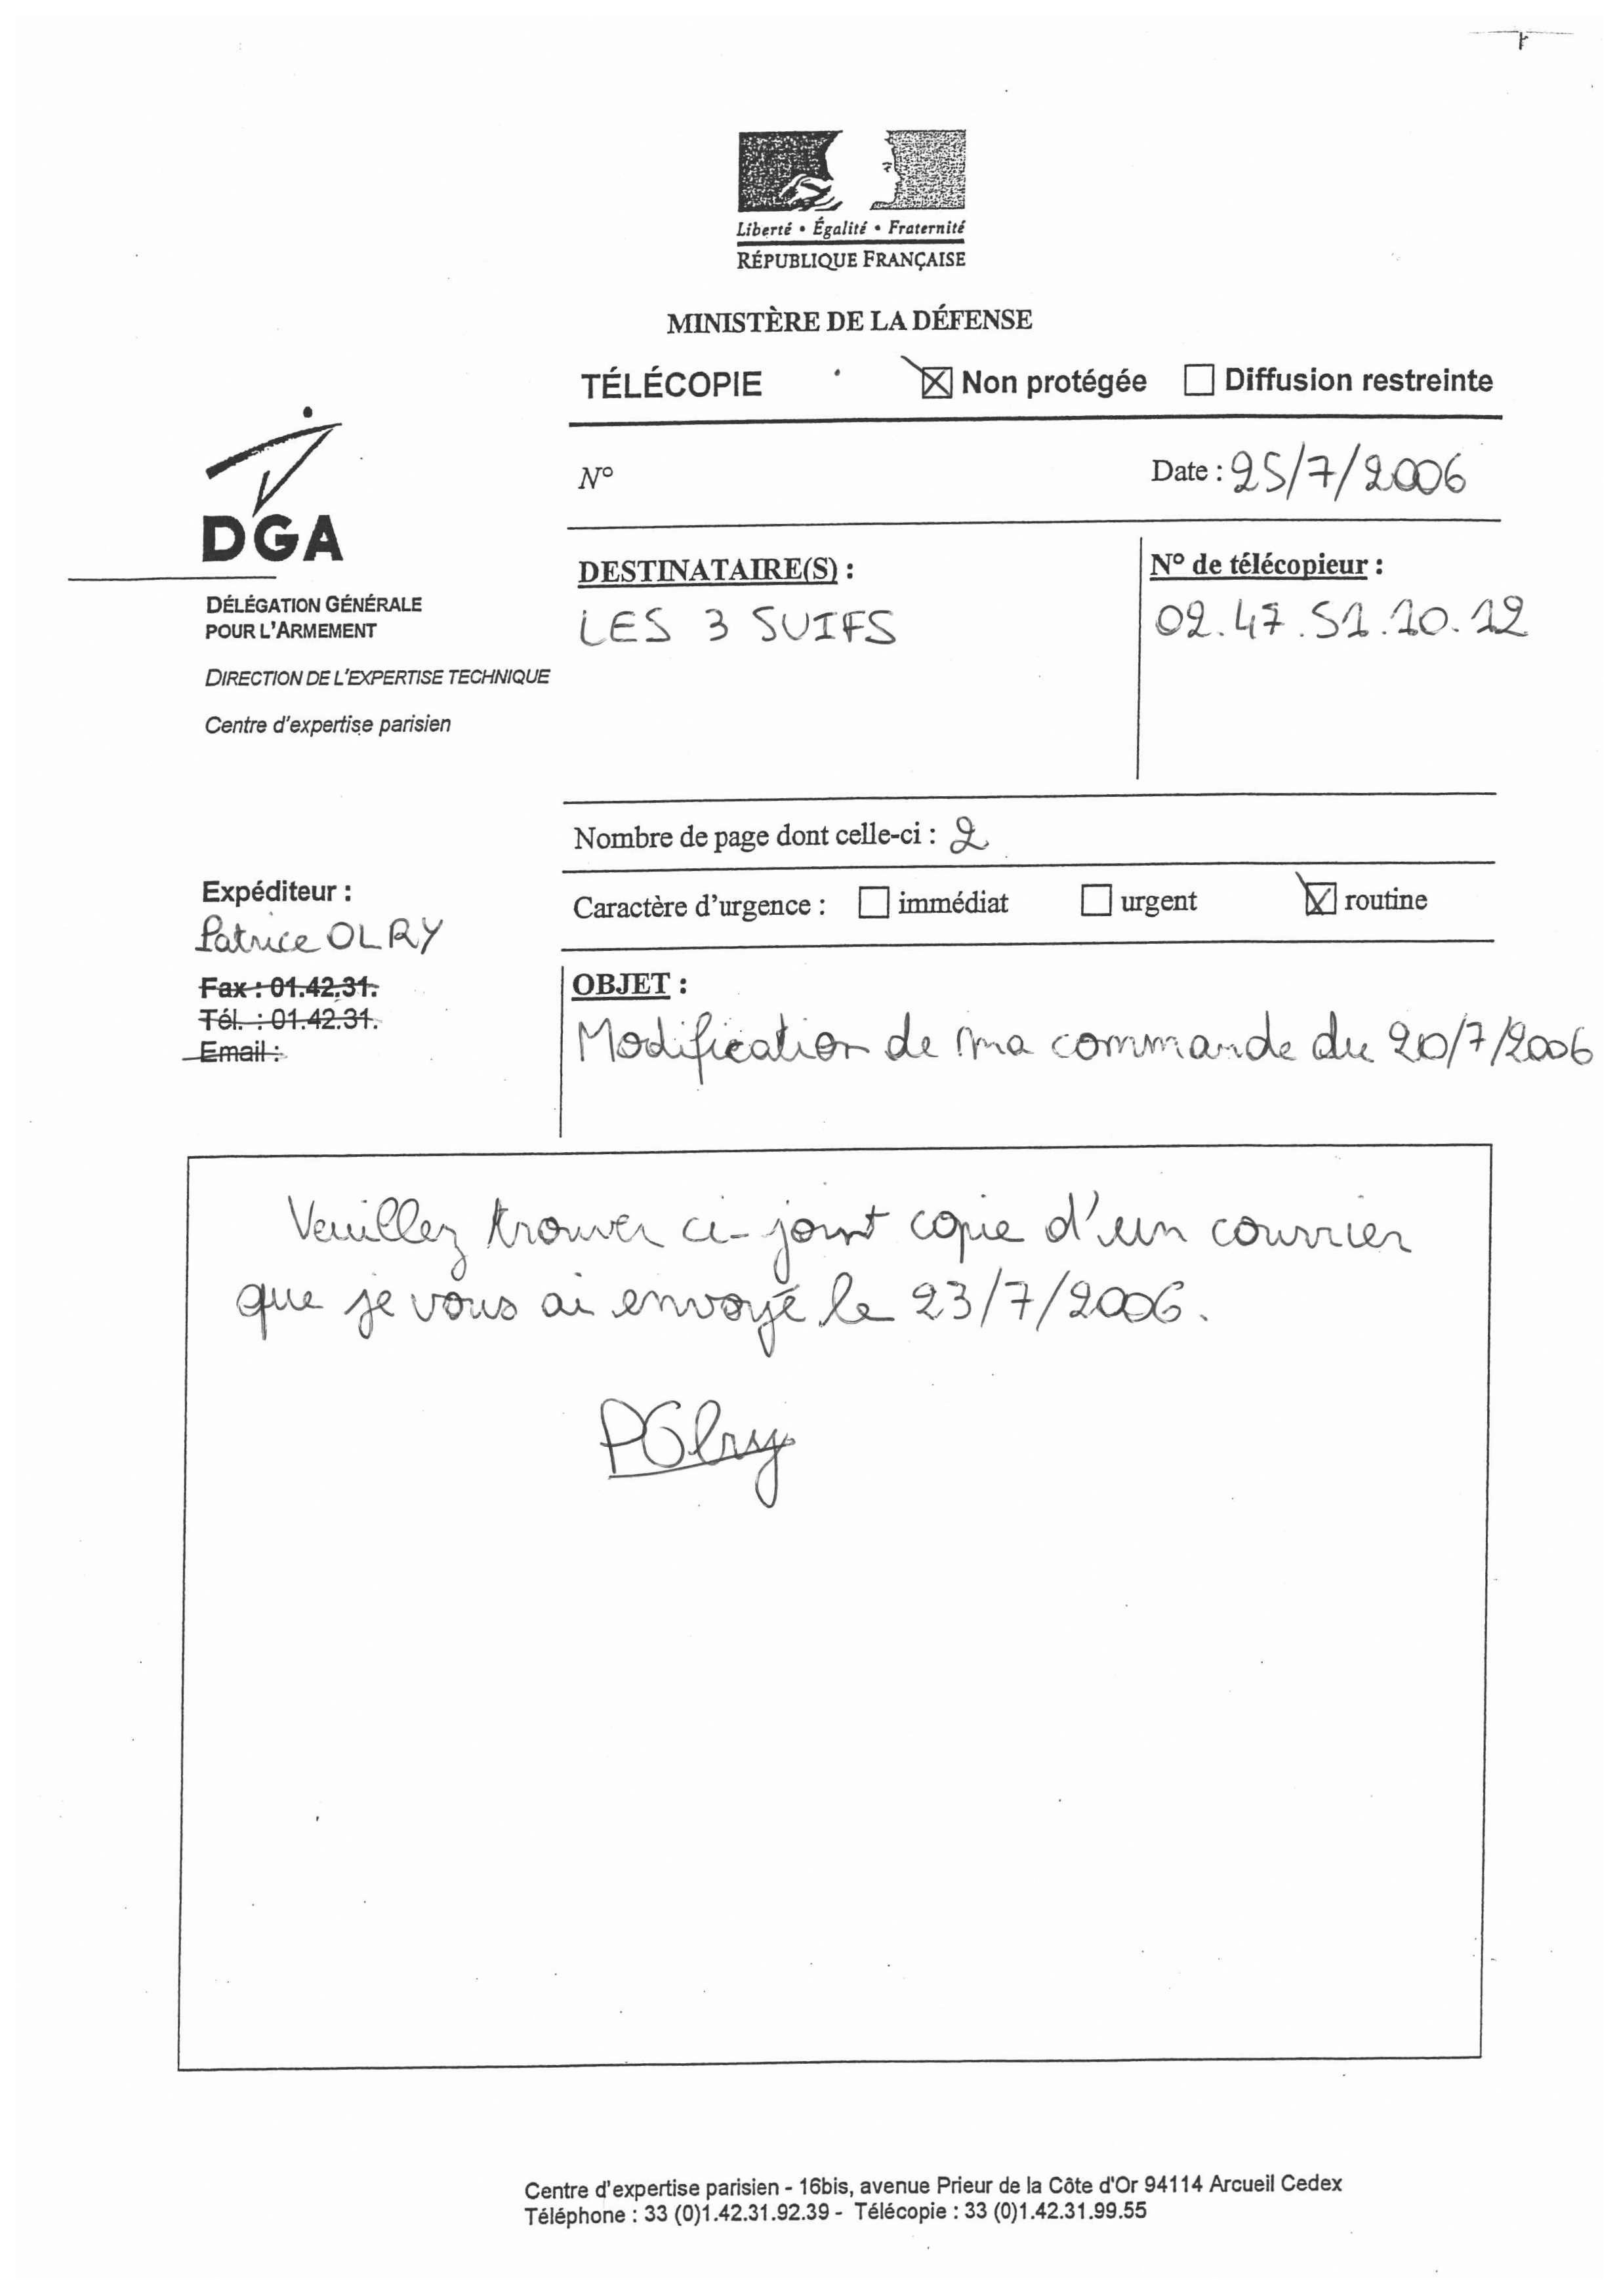 Liberté • Égalité • Fraternité
RÉPUBLIQUE FRANÇAISE
MINISTÈRE DE LA DÉFENSE
TÉLÉCOPIE ☒ Non protégée ☐ Diffusion restreinte
N° Date : 25/7/2006
DGA
DÉLÉGATION GÉNÉRALE
POUR L'ARMEMENT
DIRECTION DE L'EXPERTISE TECHNIQUE
Centre d'expertise parisien
DESTINATAIRE(S) :
LES 3 SUIFS
N° de télécopieur :
02.47.51.10.12
Nombre de page dont celle-ci : 2
Caractère d'urgence : ☐ immédiat ☐ urgent ☒ routine
Expéditeur :
Patrice OLRY
Fax : 01.42.31.
Tél. : 01.42.31.
Email :
OBJET :
Modification de ma commande du 20/7/2006
Veuillez trouver ci-joint copie d'un courrier
que je vous ai envoyé le 23/7/2006.
POlry
Centre d'expertise parisien - 16bis, avenue Prieur de la Côte d'Or 94114 Arcueil Cedex
Téléphone : 33 (0)1.42.31.92.39 - Télécopie : 33 (0)1.42.31.99.55